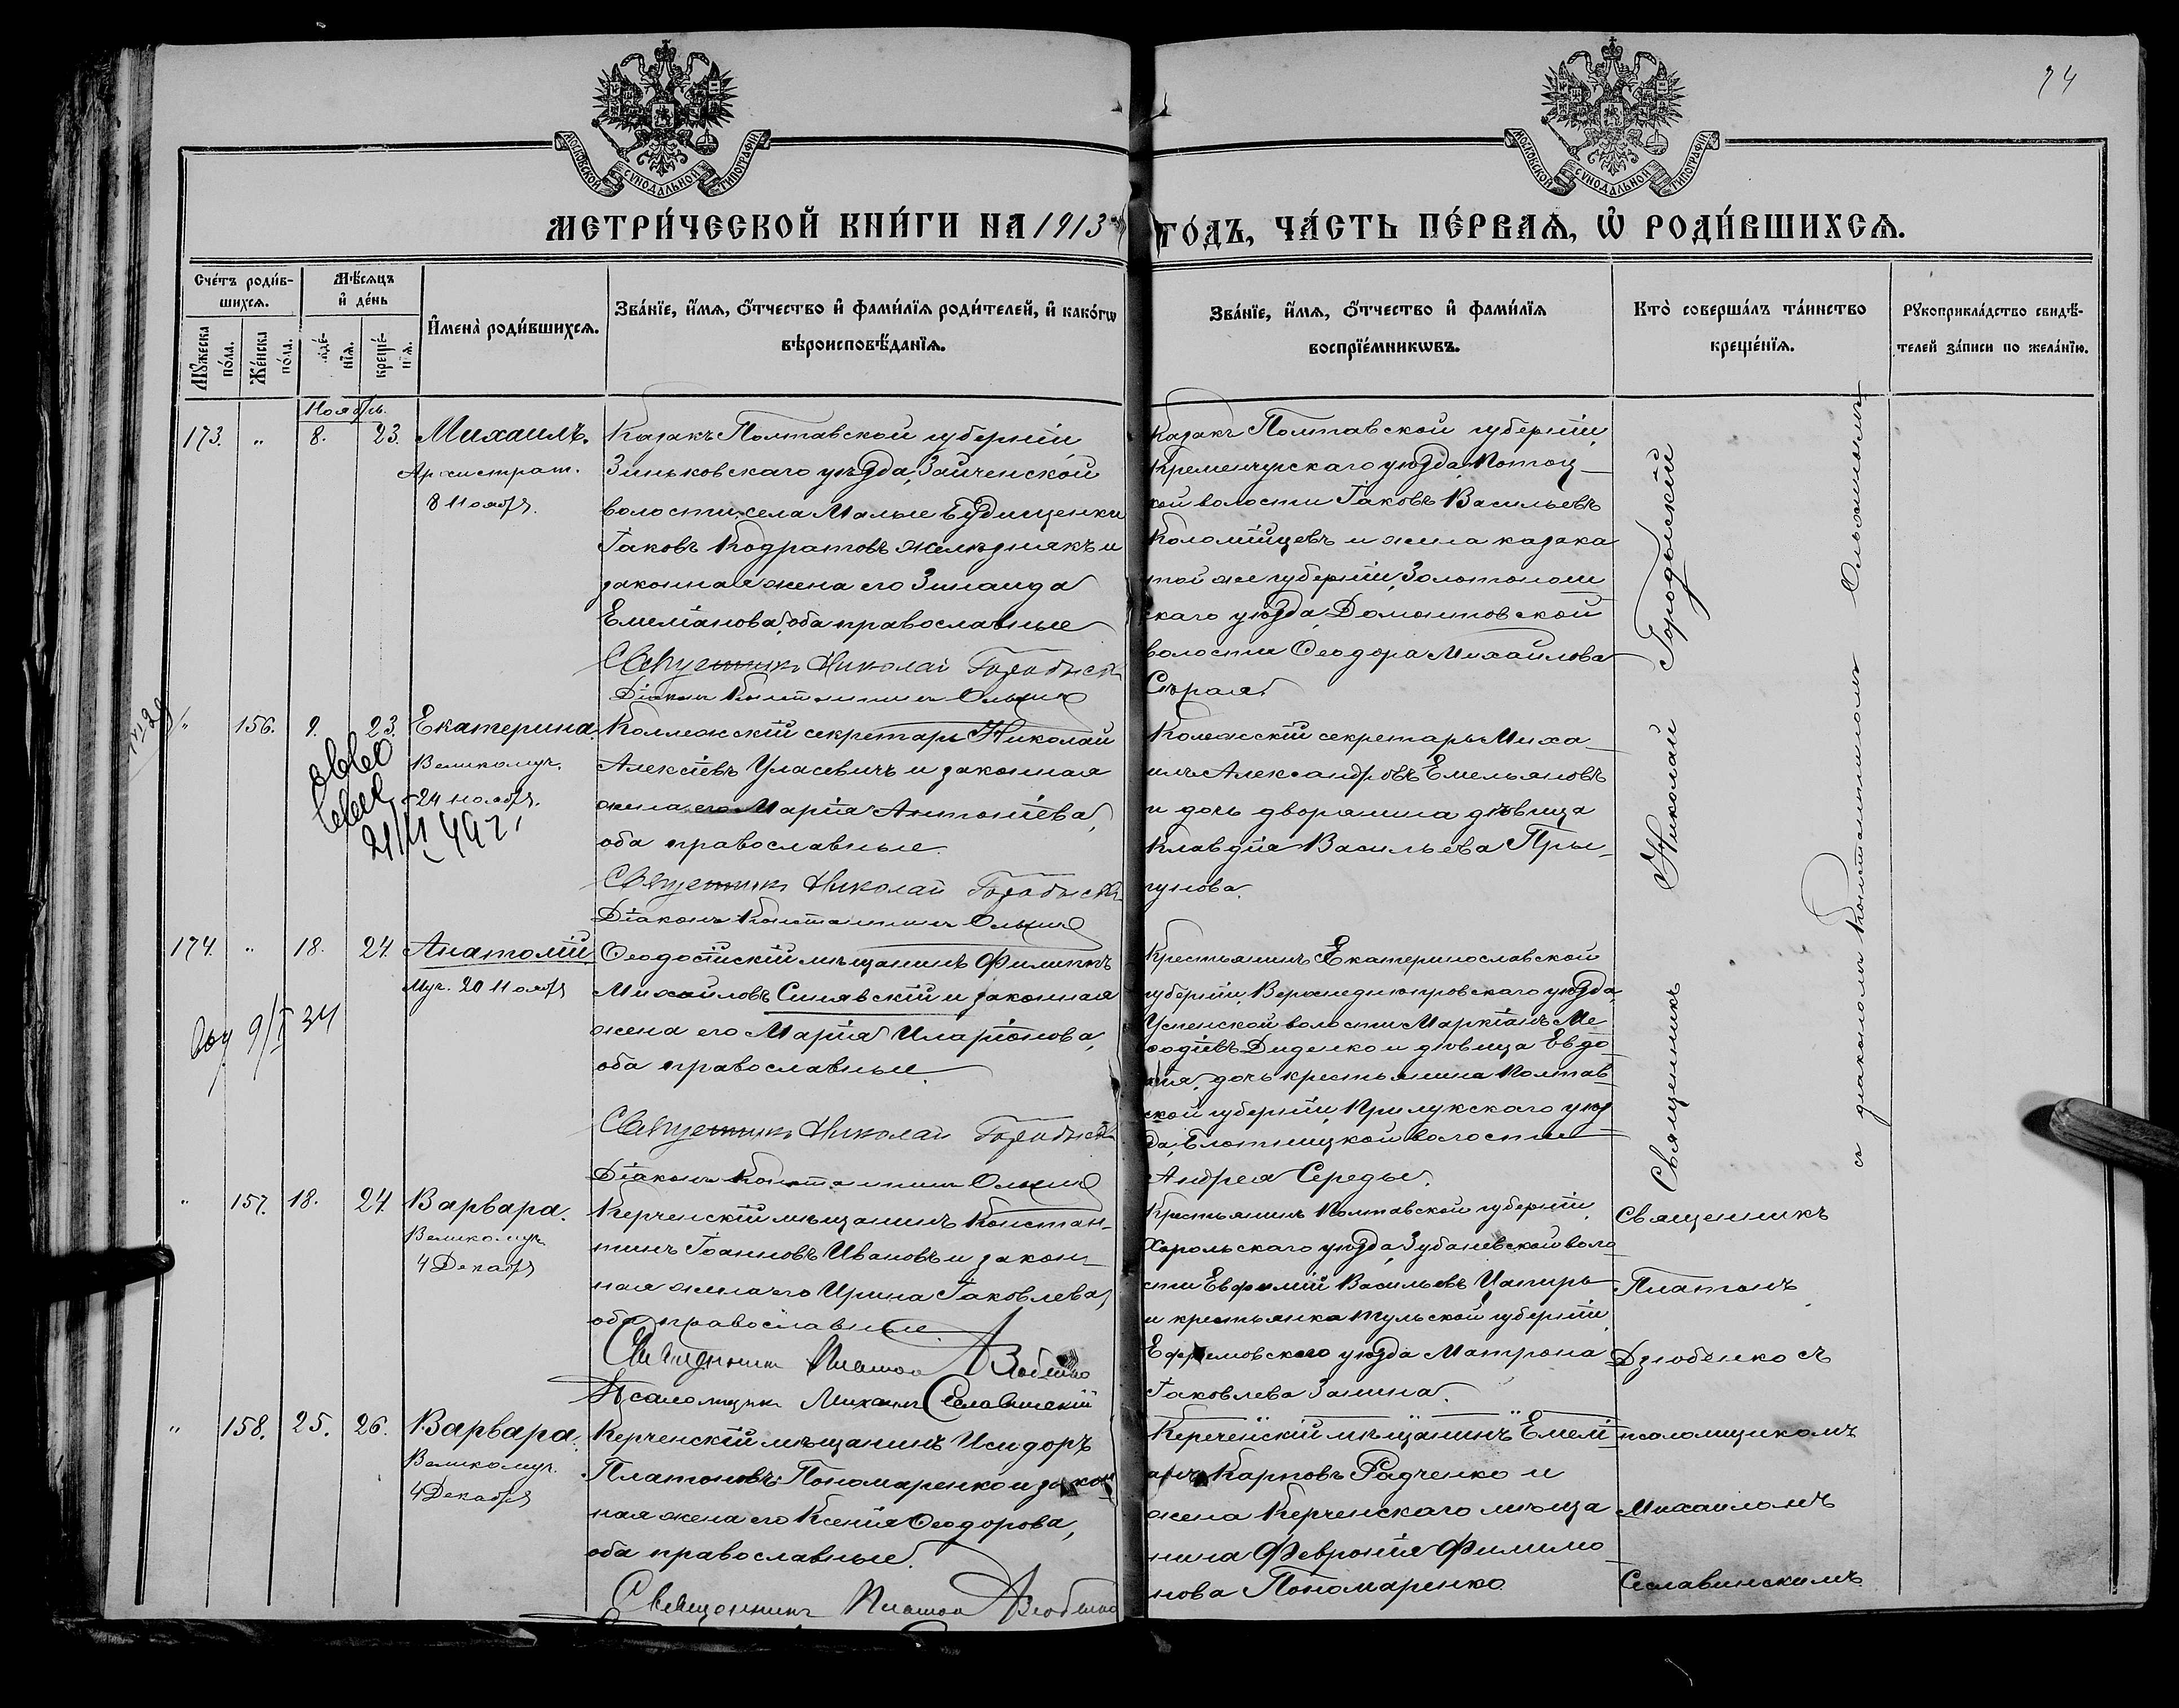 74
МОСКОВСКОЙ СѴНОДАЛЬНОЙ ТИПОГРАФІИ
МОСКОВСКОЙ СѴНОДАЛЬНОЙ ТИПОГРАФІИ
МЕТРИ́ЧЕСКОЙ КНИ́ГИ НА 1913 ГО́ДЪ, ЧА́СТЬ ПЕ́РВАѦ, Ѡ҆ РОДИ́ВШИХСѦ.
Сче́тъ роди́в-
шихсѧ.
Мꙋ́жеска по́ла.
Же́нска по́ла.
Мѣ́сѧцъ
и҆ де́нь
рожде́-
нїѧ.
креще́-
нїѧ.
И҆мена̀ роди́вшихсѧ.
Зва́нїе, и҆́мѧ, ѻ҆́тчество и҆ фами́лїѧ роди́телей, и҆ како́гѡ
вѣроисповѣ́данїѧ.
Зва́нїе, и҆́мѧ, ѻ҆́тчество и҆ фами́лїѧ
воспрїе́мникѡвъ.
Кто̀ соверша́лъ та́инство
креще́нїѧ.
Рꙋкоприкла́дство свидѣ́-
телей за́писи по жела́нїю.
Ноябрь.
173. " 8. 23. Михаилъ.
Архистрат.
8 Ноября.
Казакъ Полтавской губерніи
Зиньковскаго уѣзда, Зайченской
волости, села Малые Будищенки
Іаковъ Кодратовъ Желѣзнякъ и
законная жена его Зинаида
Емеліанова, оба православные
Священникъ Николай Городыскій
Діаконъ Константинъ
Казакъ Полтавской губерніи,
Кременчугскаго уѣзда, Потоц-
кой волости Іаковъ Васильевъ
Коломійцевъ и жена казака
той же губерніи, Золотонош
скаго уѣзда, Домонтовской
волости Ѳеодора Михайлова
Сѣрая
" 156. 9. 23. Екатерина.
Великомуч.
24 ноября.
21/XI 49 г.
Коллежскій секретарь Николай
Алексіевъ Уласевичъ и законная
жена его Марія Антоніева,
оба православные.
Священникъ Николай Городыскій
Діаконъ Константинъ
Колежскій секретарь Миха-
илъ Александровъ Емельяновъ
и дочь дворянина дѣвица
Клавдія Васильева Пры-
гунова.
174. " 18. 24. Анатолій.
Муч. 20 Ноября
9/I 34
Ѳеодосійскій мѣщанинъ Филиппъ
Михайловъ Синявскій и законная
жена его Марія Иларіонова,
оба православные.
Священникъ Николай Городыскій
Діаконъ Константинъ
Крестьянинъ Екатеринославской
губерніи, Верхнеднѣпровскаго уѣзда,
Успенской волости Маркіанъ Ме
ѳодіевъ Диденко и дѣвица Евдо
кія, дочь крестьянина Полтав-
ской губерніи, Прилукскаго уѣз
да, Блотницкой волости
Андрея Середы.
Священникъ Николай Городыскій
съ діакономъ Константиномъ
" 157. 18. 24. Варвара.
Великомуч.
4 Декабря
Керченскій мѣщанинъ Констан-
тинъ Іоанновъ Ивановъ и закон-
ная жена его Ирина Іаковлева,
оба православные.
Священникъ Платонъ Дзюбенко
Псаломщикъ Михаилъ Сеславинскій
Крестьянинъ Полтавской губерніи,
Хорольскаго уѣзда, Зубаневской воло
сти Евфимій Васильевъ
и крестьянка Тульской губерніи,
Ефремовскаго уѣзда Матрона
Іаковлева Занина.
Священникъ
Платонъ
Дзюбенко съ
псаломщикомъ
Михаиломъ
Сеславинскимъ
" 158. 25. 26. Варвара.
Великомуч.
4 Декабря
Керченскій мѣщанинъ Исидоръ
Платоновъ Пономаренко и закон
ная жена его Ксенія Ѳеодорова,
оба православные.
Священникъ Платонъ Дзюбенко
Керченскій мѣщанинъ Емелі
анъ Карповъ Радченко и
жена Керченскаго мѣща
нина Февронія Филимо
нова Пономаренко